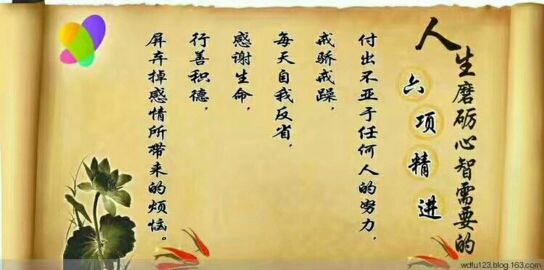 人生磨砺心智需要的
六项精进
付出不亚于任何人的努力，
戒骄戒躁，
每天自我反省，
感谢生命，
行善积德，
屏弃掉感情所带来的烦恼。
wdfu123.blog.163.com